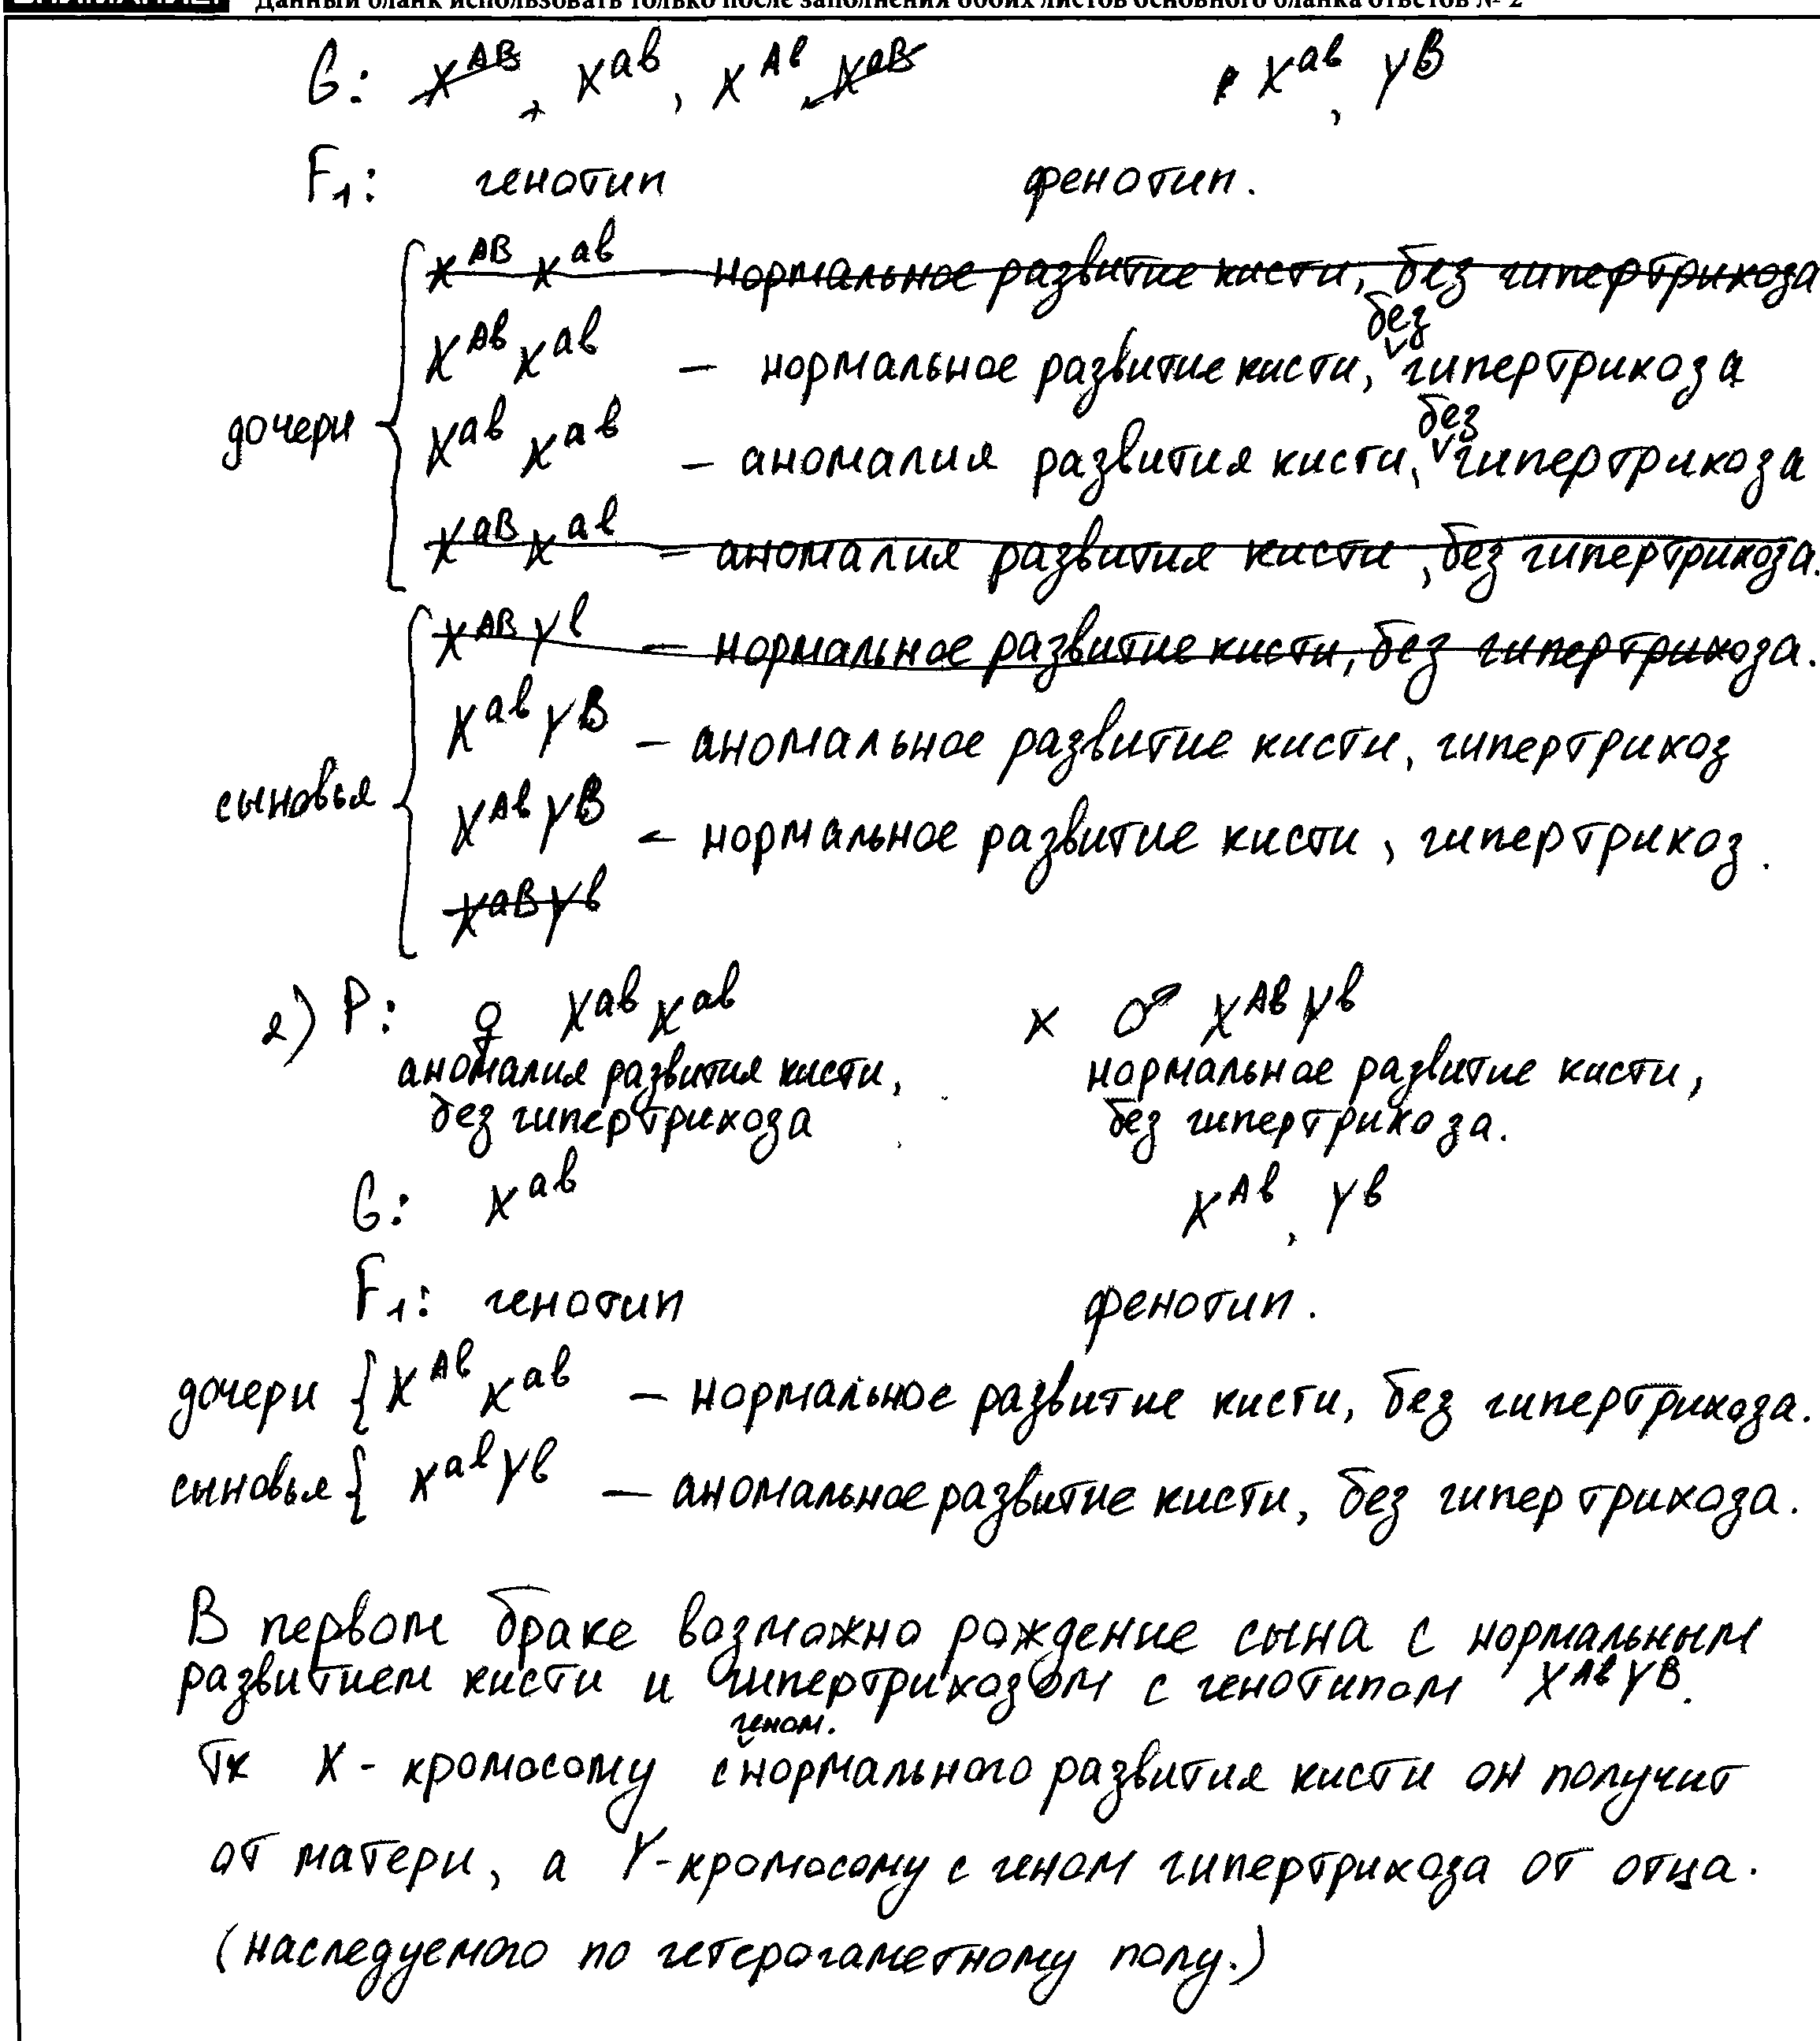 Данный бланк использовать только после заполнения обоих листов основного бланка ответов № 2
G: X^AB, X^ав, X^Ав, X^аВ X^ав, Y^B
F1: генотип фенотип.
X^AB X^ав — нормальное развитие кисти, без гипертрихоза
без
X^Ав X^ав — нормальное развитие кисти, гипертрихоза
без
дочери X^ав X^ав — аномалия развития кисти, гипертрихоза
X^аВ X^ав — аномалия развития кисти, без гипертрихоза.
X^AB Y^в — нормальное развитие кисти, без гипертрихоза.
X^ав Y^B — аномальное развитие кисти, гипертрихоз
сыновья X^Ав Y^B — нормальное развитие кисти, гипертрихоз.
X^аВ Y^в
2) P: ♀ X^ав X^ав × ♂ X^Ав Y^в
аномалия развития кисти, нормальное развитие кисти,
без гипертрихоза без гипертрихоза.
G: X^ав X^Ав, Y^в
F1: генотип фенотип.
дочери { X^Ав X^ав — нормальное развитие кисти, без гипертрихоза.
сыновья { X^ав Y^в — аномальное развитие кисти, без гипертрихоза.
В первом браке возможно рождение сына с нормальным
развитием кисти и гипертрихозом с генотипом X^Ав Y^B.
геном.
Тк X-хромосому с нормального развития кисти он получит
от матери, а Y-хромосому с геном гипертрихоза от отца.
(наследуемого по гетерогаметному полу.)